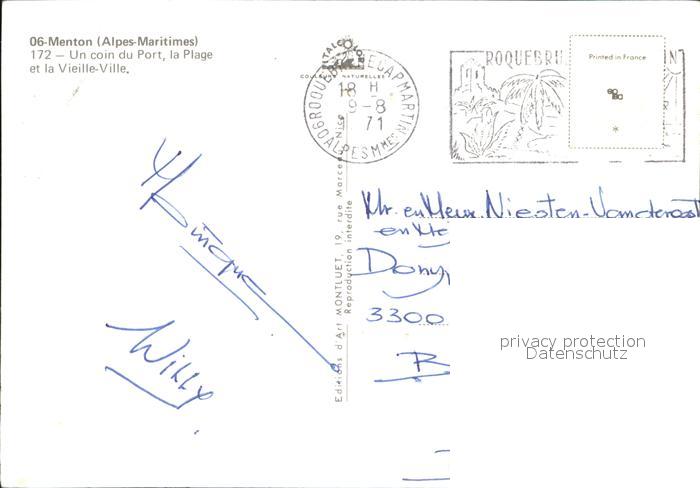 06-Menton (Alpes-Maritimes)
172 — Un coin du Port, la Plage
et la Vieille-Ville.
COULEURS NATURELLES
18 H
9-8
71
06 ROQUEBRUNE CAP MARTIN
ALPES MMES
ROQUEBRU
IN
Printed in France
*
Editions d'Art MONTLUET, 19, rue Marceau, Nice
Reproduction interdite
Mr. en Mevr. Niesten-Vanderost
en
3300
B
privacy protection
Datenschutz
Willy